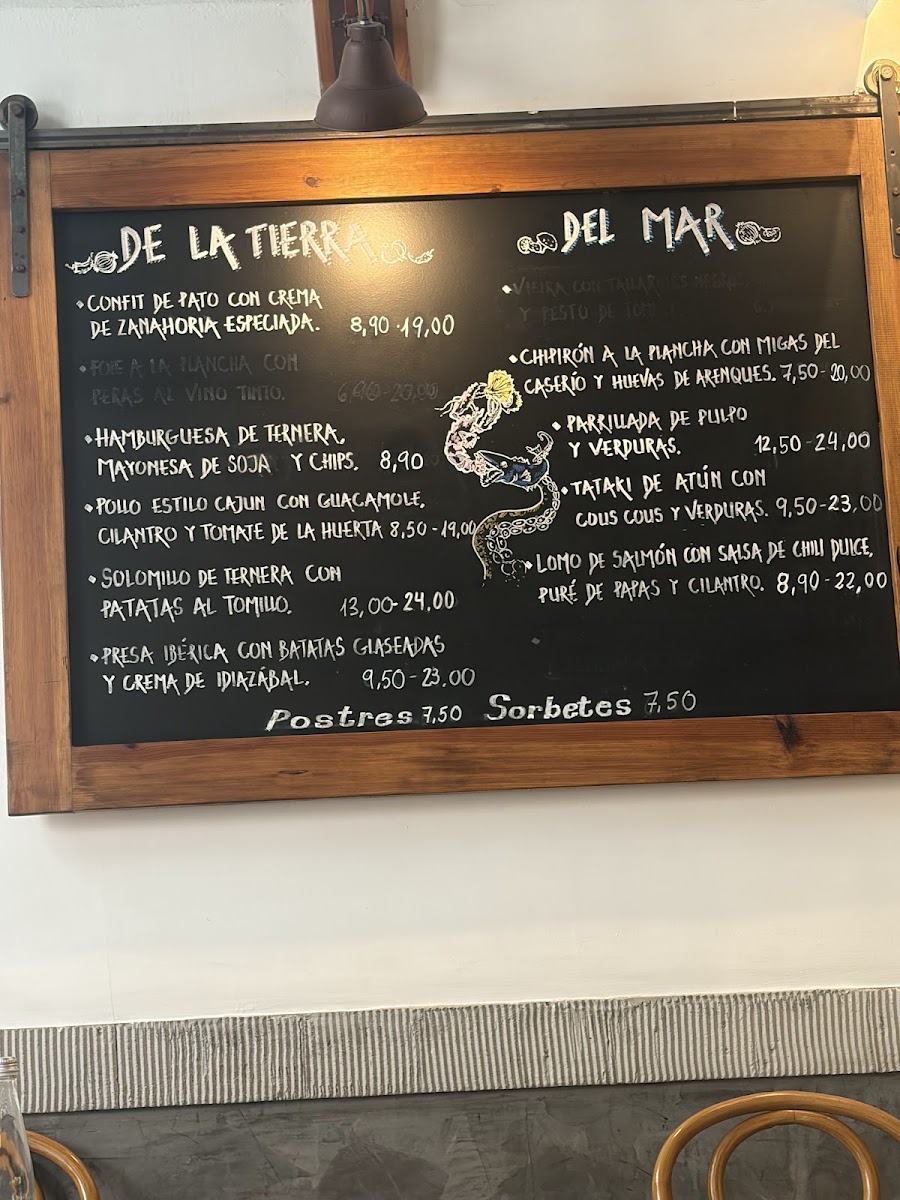 DE LA TIERRA
CONFIT DE PATO CON CREMA
DE ZANAHORIA ESPECIADA. 8,90-19,00
FOIE A LA PLANCHA CON
PERAS AL VINO TINTO.
HAMBURGUESA DE TERNERA,
MAYONESA DE SOJA Y CHIPS. 8,90
POLLO ESTILO CAJUN CON GUACAMOLE,
CILANTRO Y TOMATE DE LA HUERTA 8,50-19,00
SOLOMILLO DE TERNERA CON
PATATAS AL TOMILLO. 13,00-24,00
PRESA IBÉRICA CON BATATAS GLASEADAS
Y CREMA DE IDIAZÁBAL. 9,50-23,00
DEL MAR
VIEIRA CON TALLARINES NEGROS
Y PESTO DE
CHIPIRÓN A LA PLANCHA CON MIGAS DEL
CASERÍO Y HUEVAS DE ARENQUES. 7,50-20,00
PARRILLADA DE PULPO
Y VERDURAS. 12,50-24,00
TATAKI DE ATÚN CON
COUS COUS Y VERDURAS. 9,50-23,00
LOMO DE SALMÓN CON SALSA DE CHILI DULCE,
PURÉ DE PAPAS Y CILANTRO. 8,90-22,00
Postres 7,50 Sorbetes 7,50